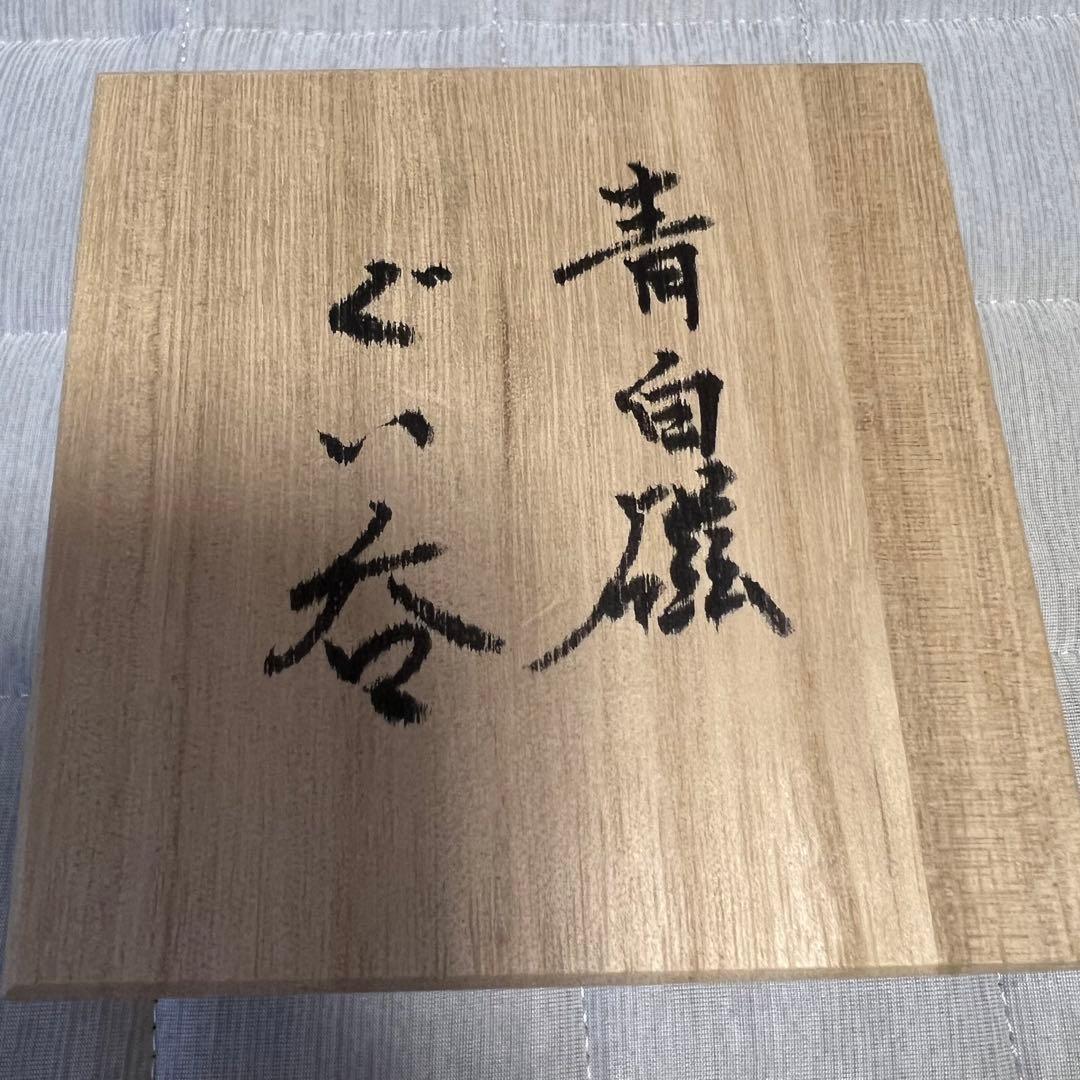 青白磁
ぐい呑